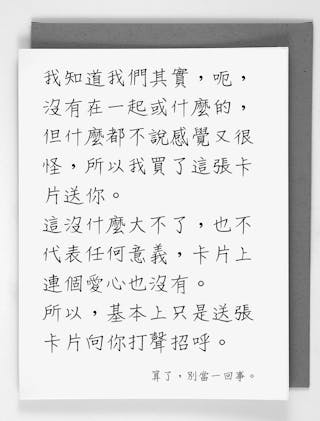 我知道我們其實，呃，
沒有在一起或什麼的，
但什麼都不說感覺又很
怪，所以我買了這張卡
片送你。
這沒什麼大不了，也不
代表任何意義，卡片上
連個愛心也沒有。
所以，基本上只是送張
卡片向你打聲招呼。
算了，別當一回事。